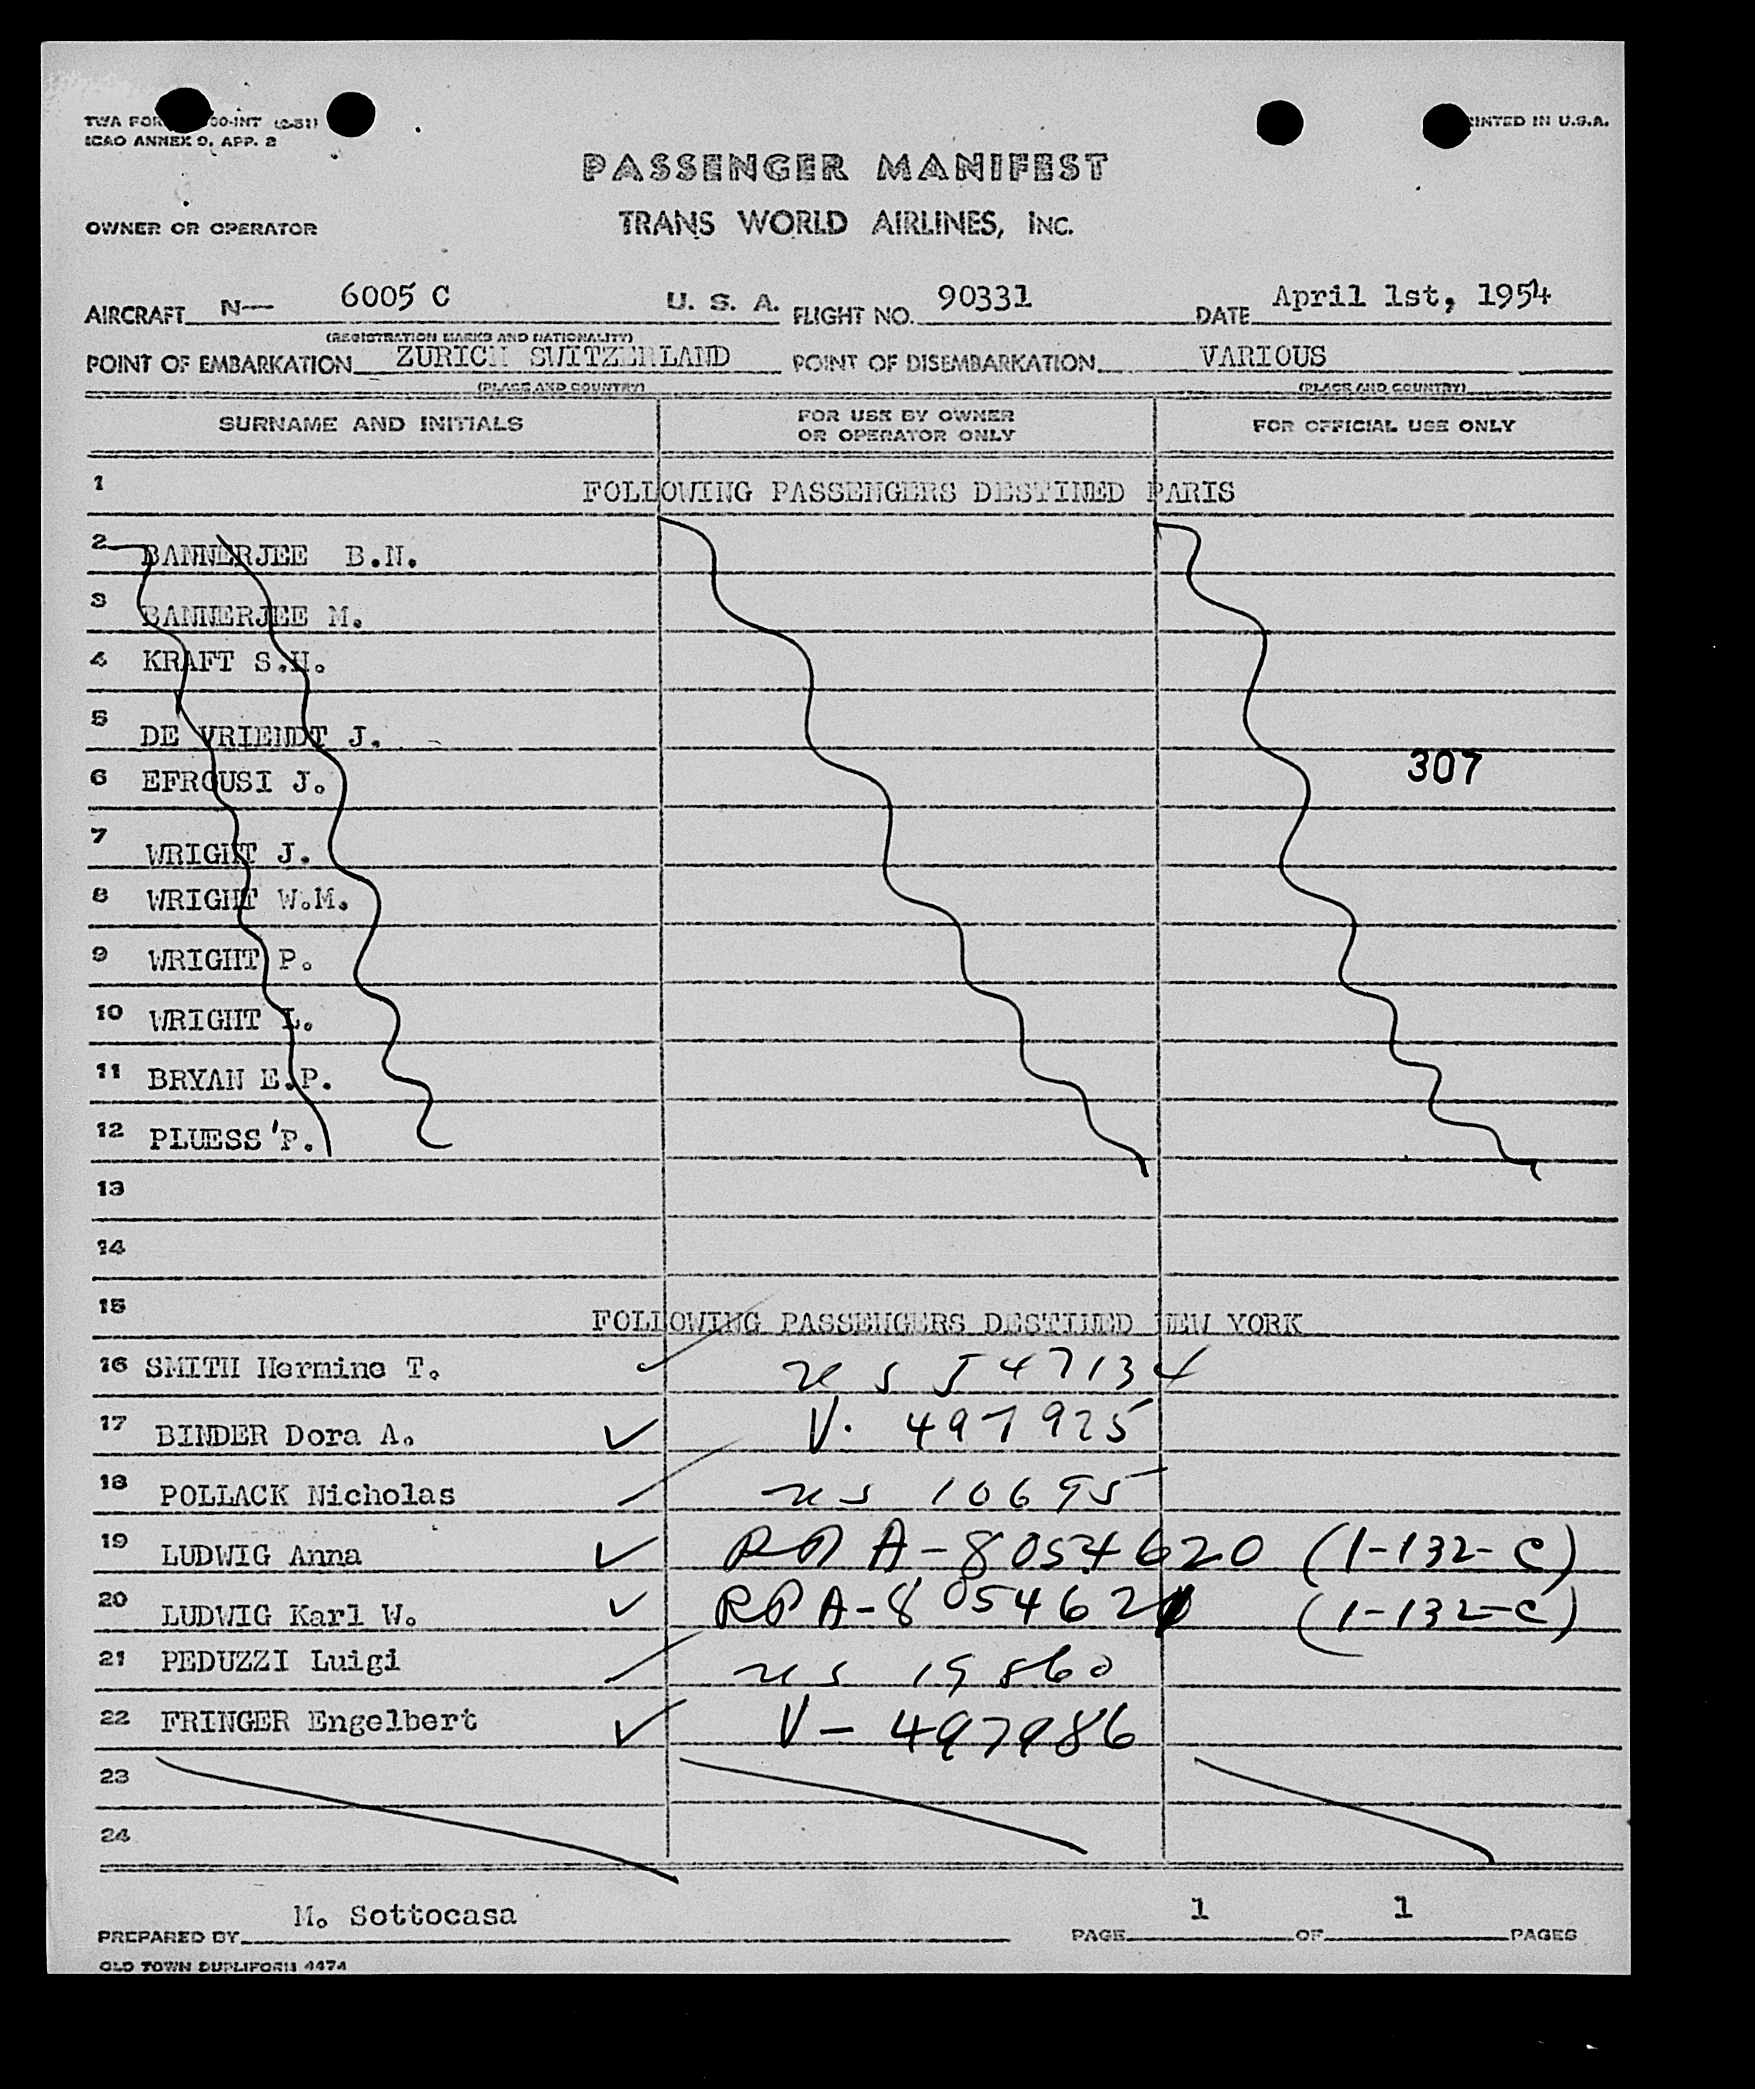 TWA FOR 00-INT (2-51)
ICAO ANNEX 9, APP. 2
PRINTED IN U.S.A.
PASSENGER MANIFEST
OWNER OR OPERATOR
TRANS WORLD AIRLINES, INC.
AIRCRAFT N— 6005 C U. S. A. FLIGHT NO. 90331 DATE April 1st, 1954
(REGISTRATION MARKS AND NATIONALITY)
POINT OF EMBARKATION ZURICH SWITZERLAND POINT OF DISEMBARKATION VARIOUS
(PLACE AND COUNTRY) (PLACE AND COUNTRY)
SURNAME AND INITIALS FOR USE BY OWNER OR OPERATOR ONLY FOR OFFICIAL USE ONLY
1 FOLLOWING PASSENGERS DESTINED PARIS
2 BANNERJEE B.N.
3 BANNERJEE M.
4 KRAFT S.H.
5 DE VRIENDT J.
307
6 EFROUSI J.
7 WRIGHT J.
8 WRIGHT W.M.
9 WRIGHT P.
10 WRIGHT L.
11 BRYAN E.P.
12 PLUESS P.
13
14
15 FOLLOWING PASSENGERS DESTINED NEW YORK
16 SMITH Hermine T. ✓ us 547134
17 BINDER Dora A. ✓ V. 497925
18 POLLACK Nicholas us 10695
19 LUDWIG Anna ✓ RP A-8054620 (1-132-C)
20 LUDWIG Karl W. ✓ RP A-8054621 (1-132-C)
21 PEDUZZI Luigi us 19860
22 FRINGER Engelbert ✓ V - 497986
23
24
PREPARED BY M. Sottocasa PAGE 1 OF 1 PAGES
OLD TOWN DUPLIFORM 4474